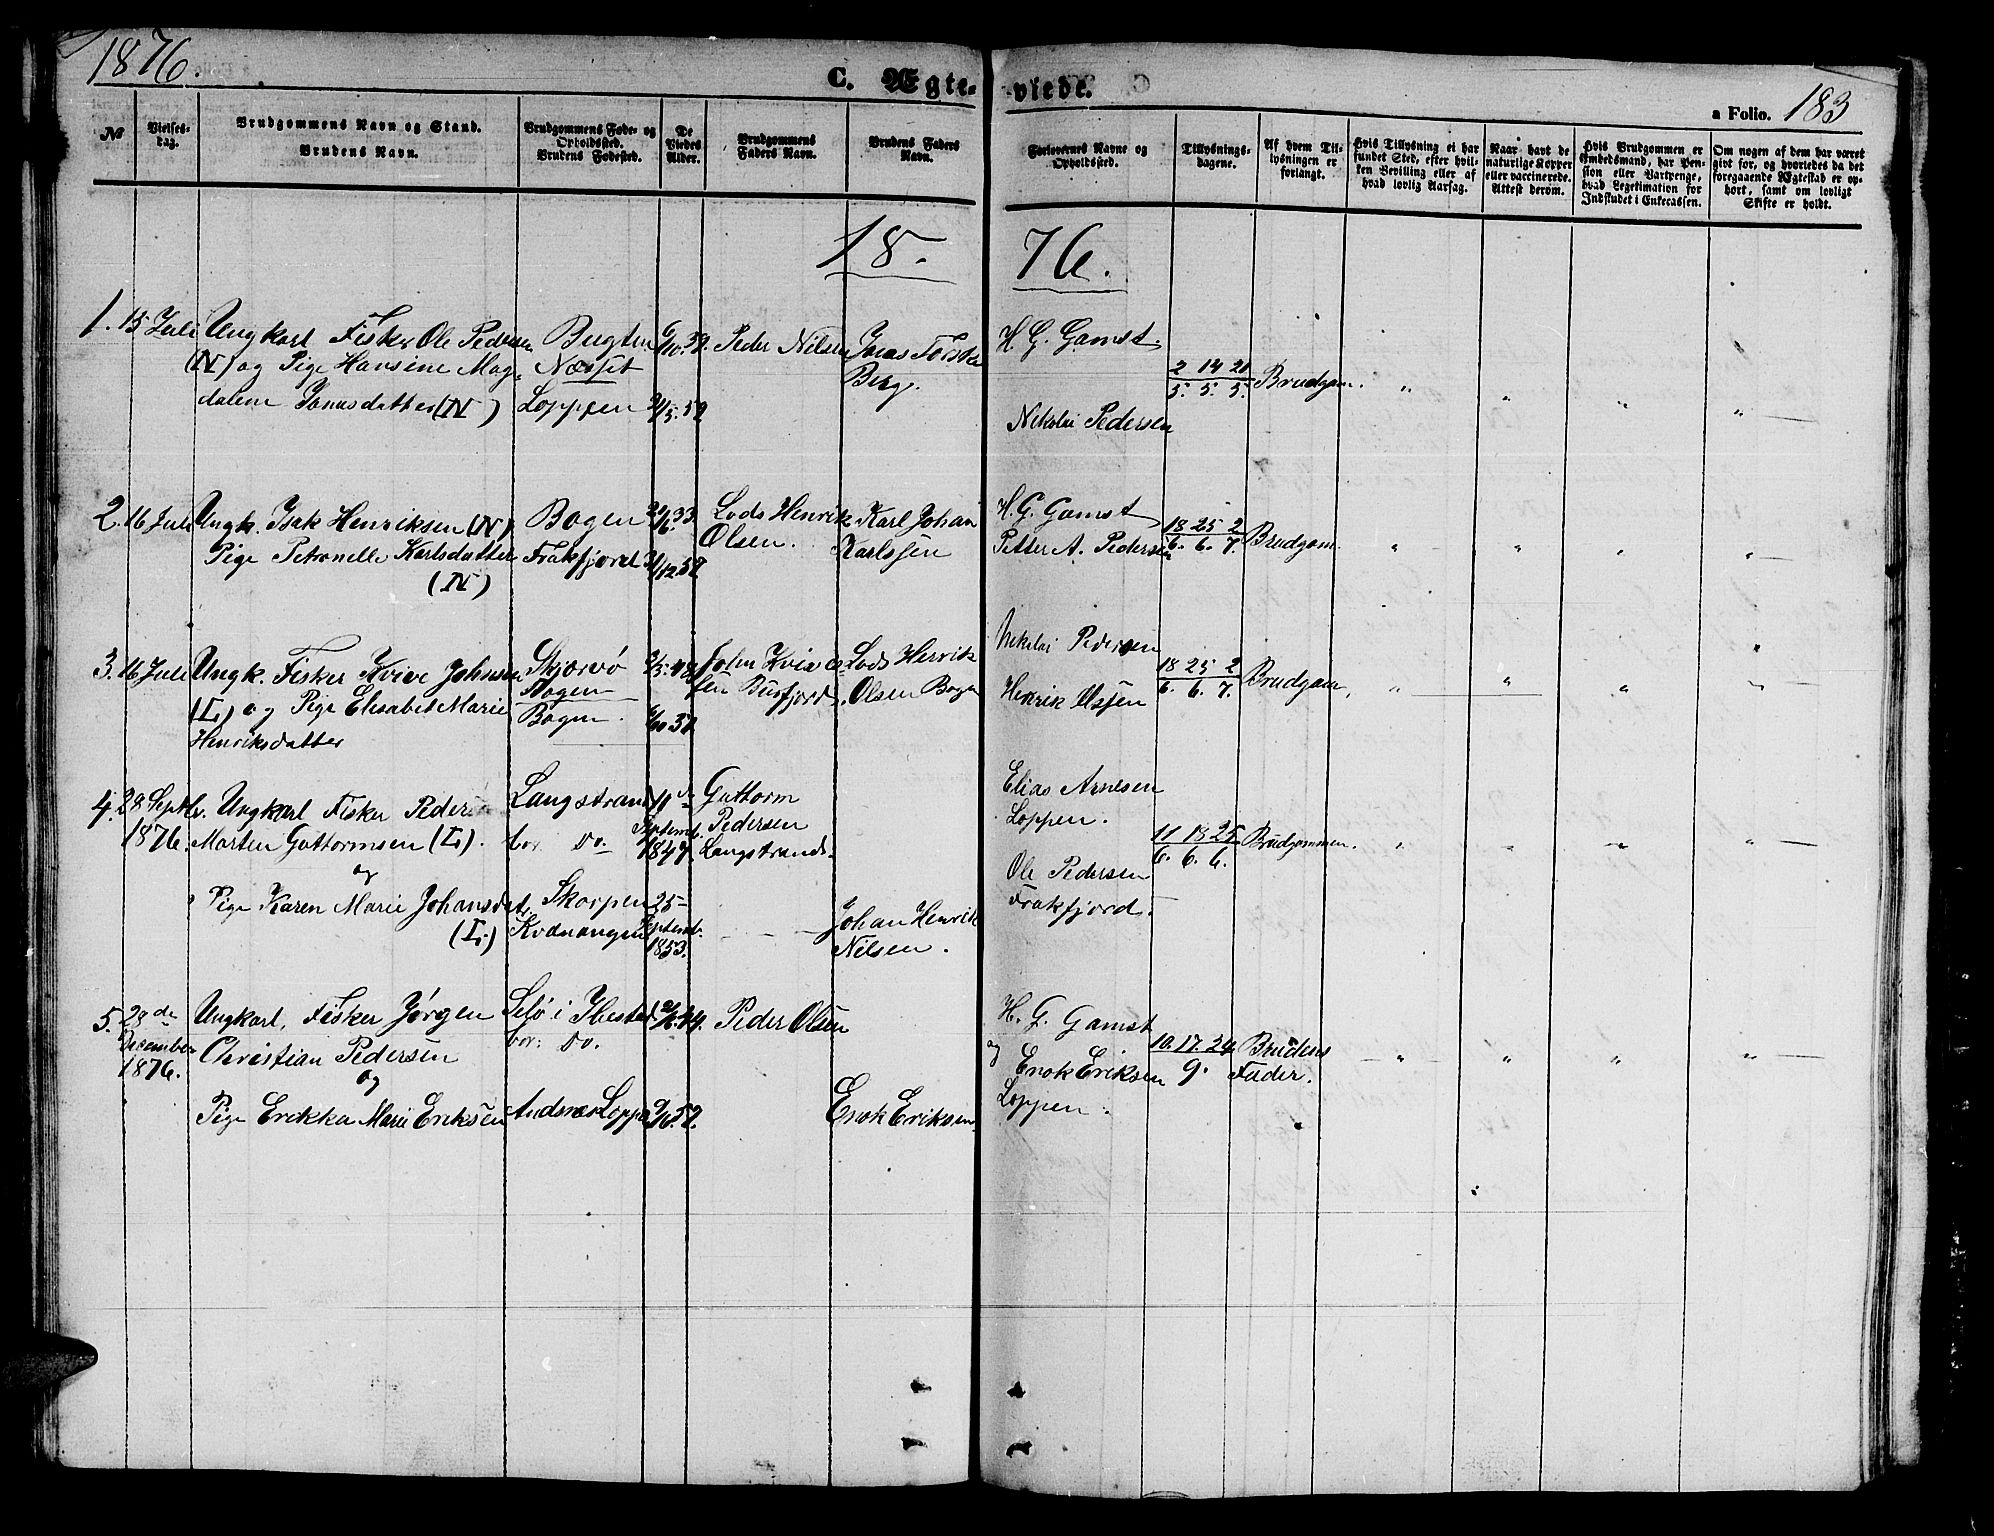 1876.
C. Ægte-viede.
a Folio. 183
№
Vielses-dag.
Brudgommens Navn og Stand.
Brudens Navn.
Brudgommens Føde- og Opholdssted.
Brudens Fødested.
De Viedes Alder.
Brudgommens Faders Navn.
Brudens Faders Navn.
Forlovernes Navne og Opholdssted.
Tillysnings-dagene.
Af hvem Tillysningen er forlangt.
Hvis Tillysning ei har fundet Sted, efter hvilken Bevilling eller af hvad lovlig Aarsag.
Naar havt de naturlige Kopper eller vaccinerede. Attest derom.
Hvis Brudgommen er Embedsmand, har Pension eller Vartpenge, hvad Legetimation for Indskudet i Enkecassen.
Om nogen af dem har været givt for, og hvorledes da det foregaaende Ægtestad er ophørt, samt om lovligt Skifte er holdt.
18. 76.
1. 15 Juli Ungkarl Fisker Ole Pedersen
(N) og Pige Hansine Mag-
dalene Jonasdatter (N)
Næsset
Loppen
Peder Nilsen
Jonas
Berg.
H. G. Gamst.
Nikolai Pedersen
2 14 21
5. 5. 5.
Brudgom.
2. 16 Juli Ungk. Isak Henriksen (N)
Pige Petronelle Karlsdatter
(N)
Bogen
Frakfjord
Lods Henrik
Olsen.
Karl Johan
Karlssen
H. G. Gamst
Petter A. Pedersen
18 25 2
6. 6. 7.
Brudgom.
3. 16 Juli Ungk. Fisker Kvive Johnsen
(L) og Pige Elisabet Marie
Henriksdatter
Skjervö
Bogen
Bogen.
John
Lods Henrik
Olsen Bogen
Nikolai Pedersen
Henrik Olssen
18 25 2
6. 6. 7.
Brudgom.
4. 28 Septbr. 1876. Ungkarl Fisker Peder
Morten Guttormsen (L).
og
Pige Karen Marie Johansdat.
(L)
Langstrand
bor. Do.
Skorpen
Kvænangen
11
Septemb.
1847.
25
Septemb.
1853.
Guttorm
Pedersen
Langstrand.
Johan Henrik
Nilsen.
Elias Arnesen
Loppen.
Ole Pedersen
Frakfjord.
11 18 25
6. 6. 6.
Brudgommen.
5. 28de December 1876. Ungkarl, Fisker Jørgen
Christian Pedersen
og
Pige Erikka Marie Eriksen
Selö i Ibestad
bor: Do.
Andsnæs Loppa
Peder Olsen
Enok Eriksen.
H. G. Gamst
og
Enok Eriksen
Loppen.
10. 17. 24.
9.
Brudens
Fader.